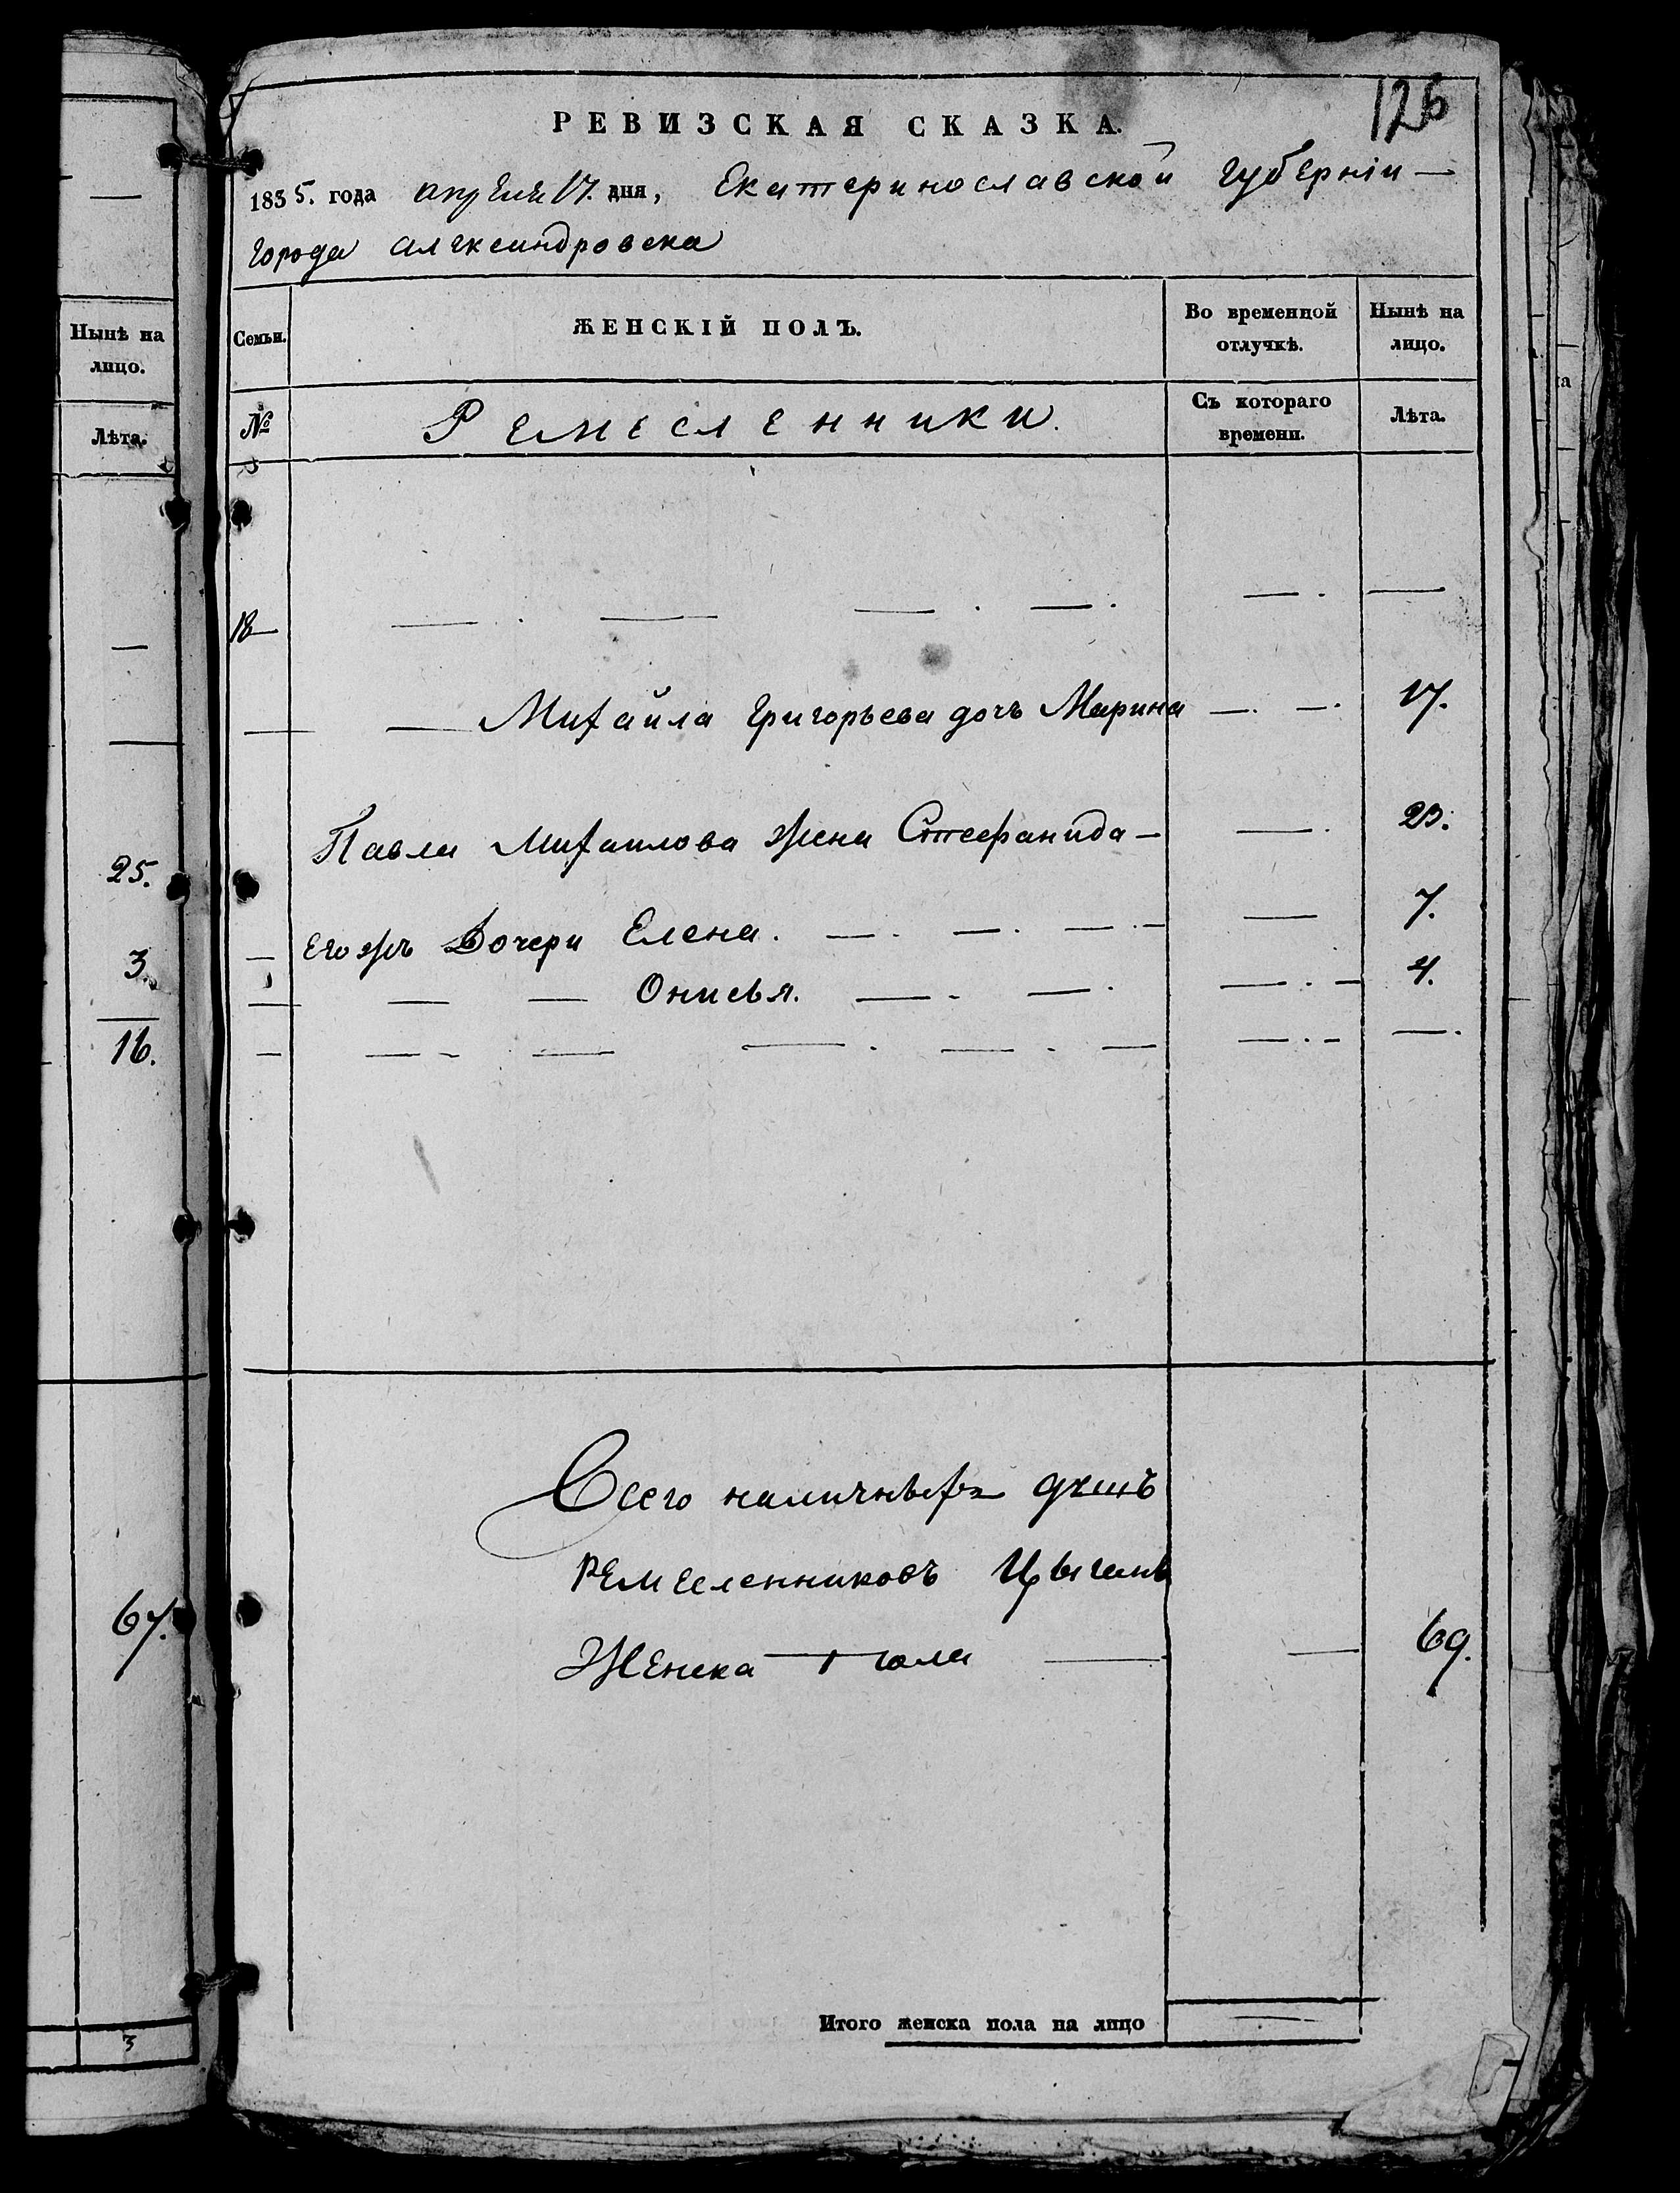 Нынѣ на
лицо.
Лѣта.
25.
3.
16.
67.
3
126
РЕВИЗСКАЯ СКАЗКА.
1835. года апреля 17. дня, Екатеринославской губерніи —
города александровска
Семьи.
ЖЕНСКІЙ ПОЛЪ.
Во временной
отлучкѣ.
Нынѣ на
лицо.
№
Ремесленники.
Съ котораго
времени.
Лѣта.
18
Михайла Григорьева дочь Марина — 17.
Павла Михаилова жена Стефанида — 23.
Его жъ Дочери Елена. — 7.
— — Онисья. — 4.
Всего наличныхъ душъ
Ремесленниковъ Цыганъ
Женска пола — 69.
Итого женска пола на лицо